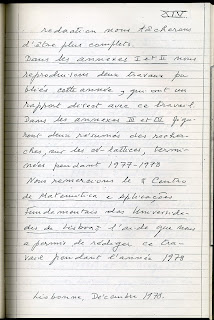 XIV
rédaction nous tâcherons
d'être plus complets.
Dans les annexes I et II nous
reproduisons deux travaux pu-
bliés cette année, qui ont un
rapport direct avec ce travail
Dans les annexes III et IV figu-
rent deux résumés des recher-
ches, sur les et-lattices, termi-
nées pendant 1977-1978
Nous remercions le Centro
de Matemática e Aplicações
Fundamentais das Universida-
des de Lisboa l'aide que nous
a permis de rédiger ce tra-
vail pendant l'année 1978
Lisbonne, Décembre 1978.